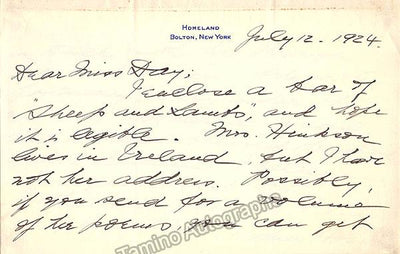 HOMELAND
BOLTON, NEW YORK
July 12. 1924.
Dear Miss Day;
I enclose a bar of
"Sheep and Lambs", and hope
it is legible. Mrs. Hinkson
lives in Ireland, but I have
not her address. Possibly,
if you send for a volume
of her poems, you can get
Tamino Autographs